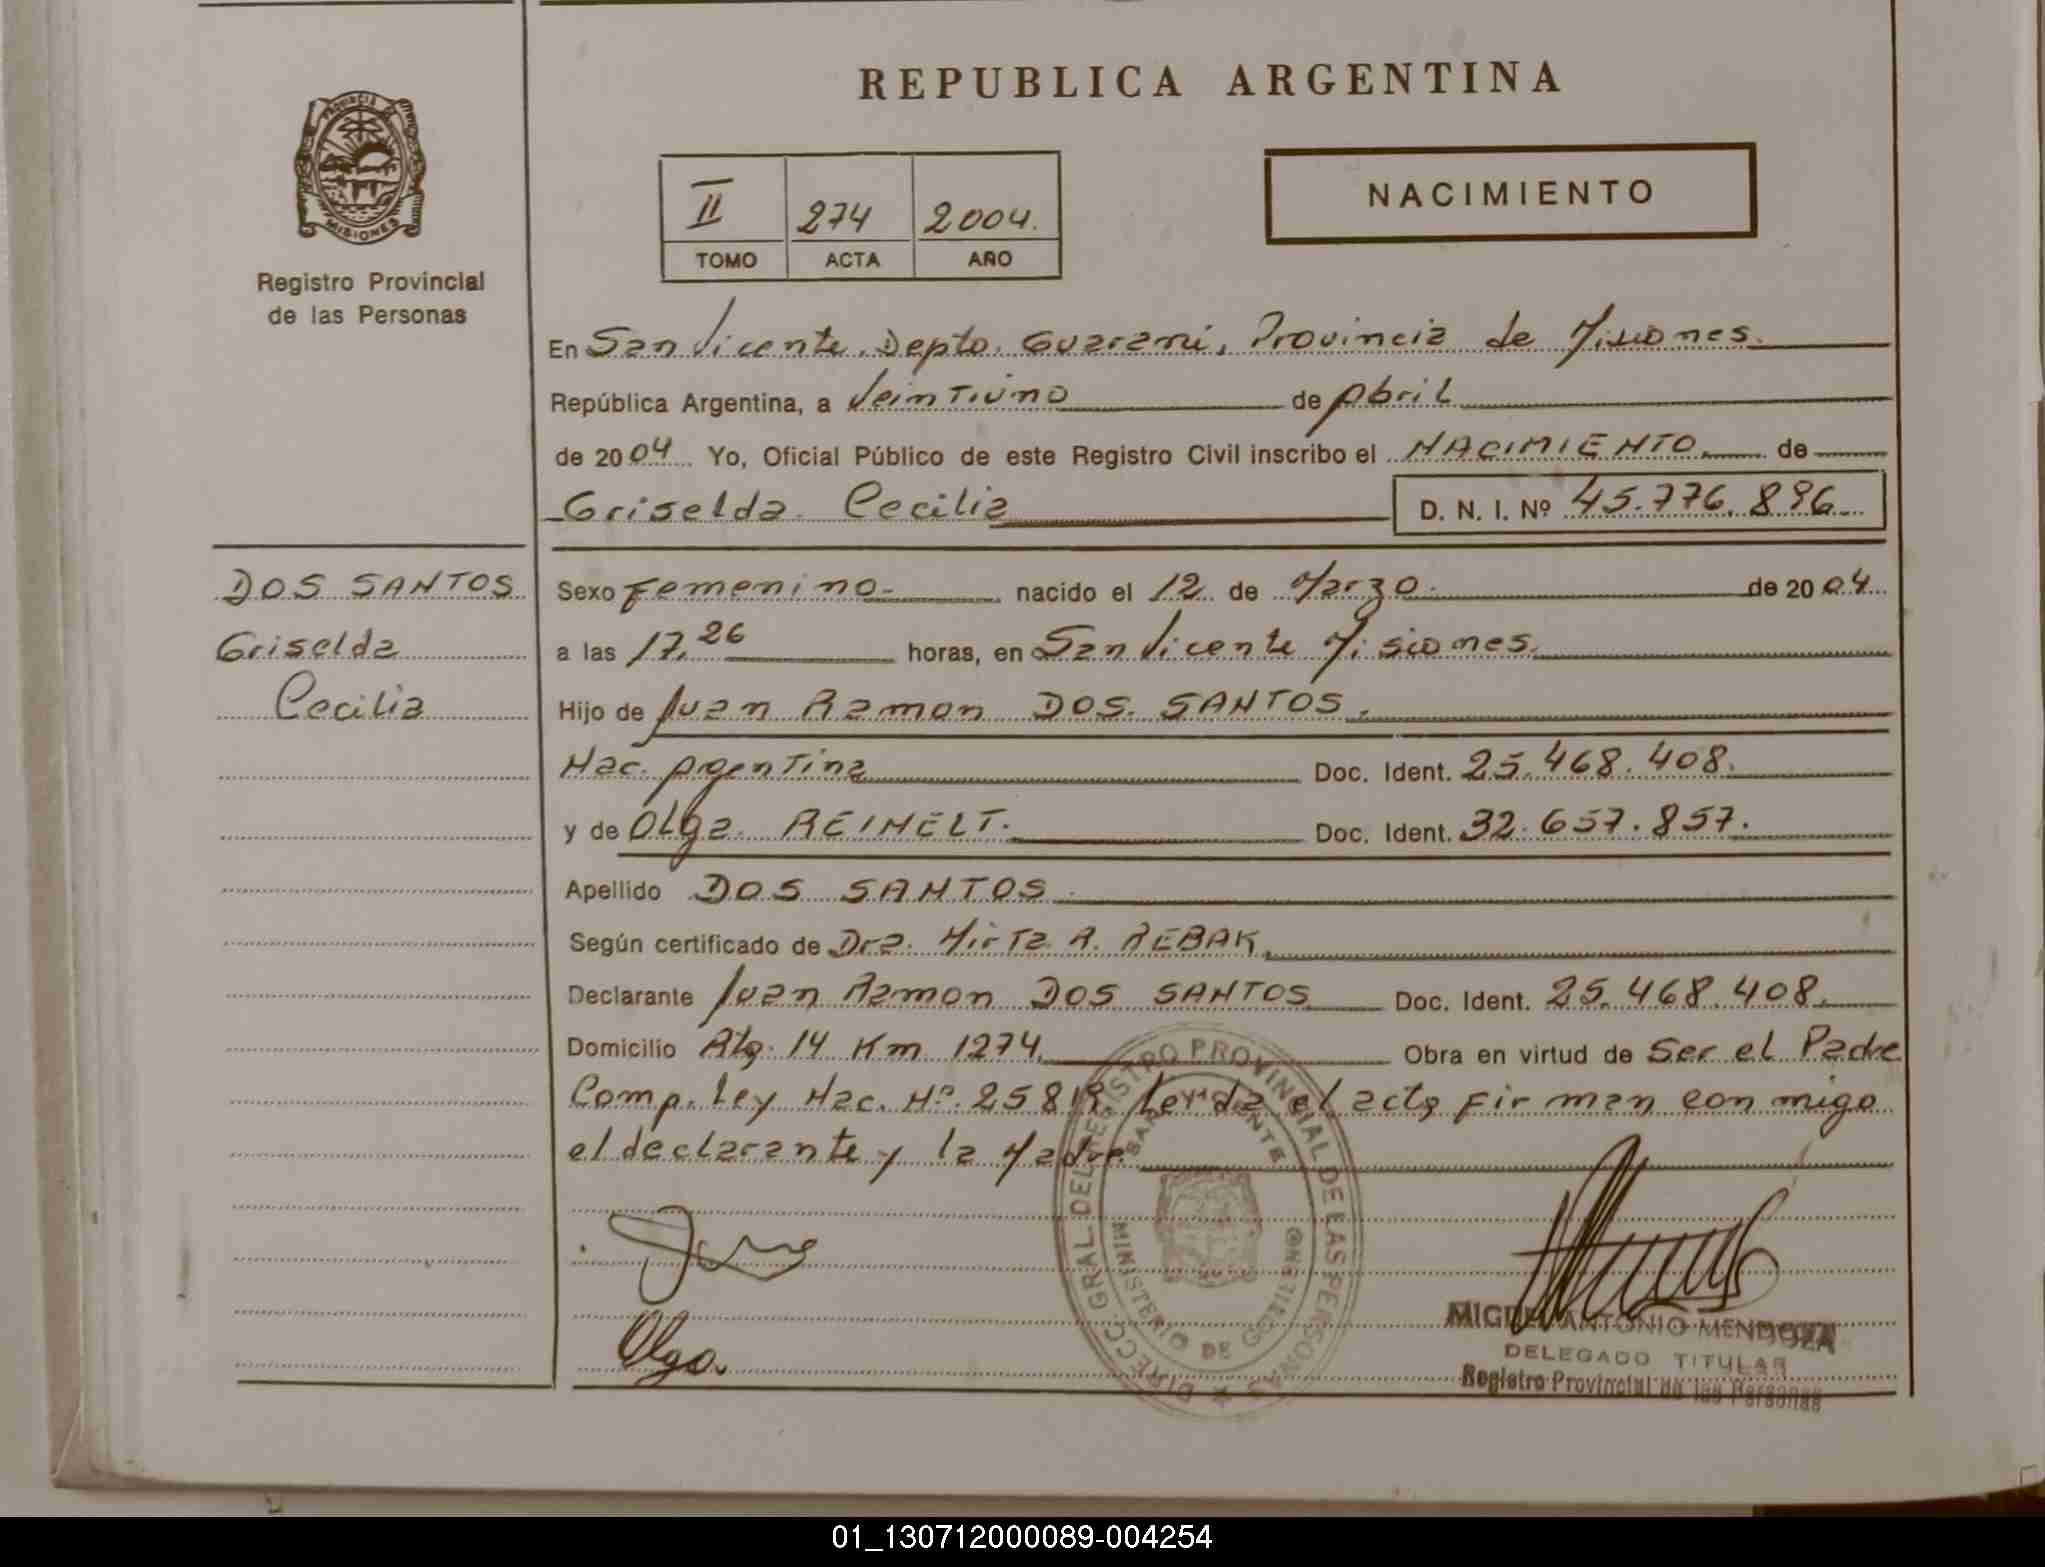 REPUBLICA ARGENTINA
PROVINCIA DE
MISIONES
Registro Provincial
de las Personas
II 274 2004.
TOMO ACTA AÑO
NACIMIENTO
En San Vicente, Depto. Guaraní, Provincia de Misiones.
República Argentina, a Veintiuno de Abril
de 2004 Yo, Oficial Público de este Registro Civil inscribo el NACIMIENTO de
Griselda Cecilia D. N. I. Nº 45.776.896
DOS SANTOS
Griselda
Cecilia
Sexo Femenino nacido el 12 de Marzo de 2004
a las 17,26 horas, en San Vicente Misiones.
Hijo de Juan Ramon DOS SANTOS.
Nac. Argentina Doc. Ident. 25.468.408.
y de Olga REINELT. Doc. Ident. 32.657.857.
Apellido DOS SANTOS
Según certificado de Dra. Mirta R. REBAK
Declarante Juan Ramon DOS SANTOS Doc. Ident. 25.468.408.
Domicilio Km 1274 Obra en virtud de Ser el Padre
Comp. Ley Nac. Nº 25819 Leida el acta firman con migo
el declarante y la Madre.
Olga.
DIRECC. GRAL. DEL REGISTRO PROVINCIAL DE LAS PERSONAS
MINISTERIO DE GOBIERNO
MIGUEL ANTONIO MENDOZA
DELEGADO TITULAR
Registro Provincial de las Personas
01_130712000089-004254